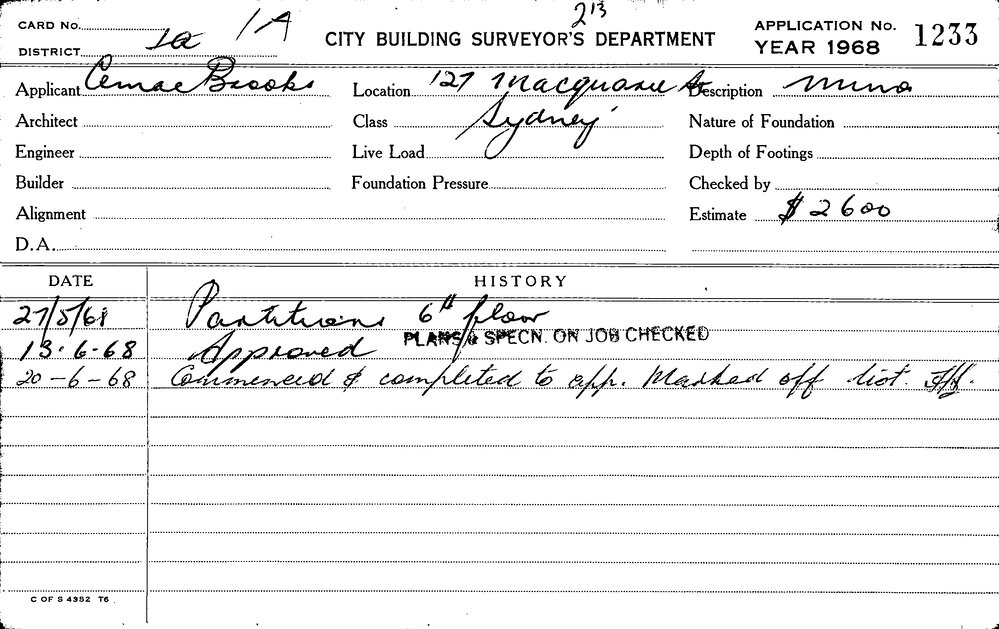 213
CARD No. 1A
DISTRICT 1a
CITY BUILDING SURVEYOR'S DEPARTMENT
APPLICATION No. 1233
YEAR 1968
Applicant Cemac Brooks Location 127 Macquarie St Description minor
Architect Class Sydney Nature of Foundation
Engineer Live Load Depth of Footings
Builder Foundation Pressure Checked by
Alignment Estimate $2600
D.A.
DATE HISTORY
27/5/68 Partitions 6th floor
13.6.68 Approved PLANS & SPECN. ON JOB CHECKED
20-6-68 Commenced & completed to app. Marked off list.
C OF S 4352 T6